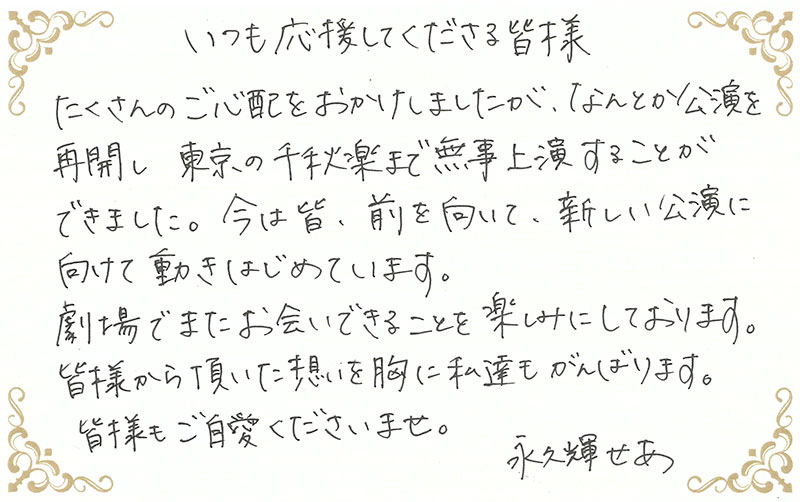 いつも応援してくださる皆様
たくさんのご心配をおかけしましたが、なんとか公演を
再開し 東京の千秋楽まで無事上演することが
できました。今は皆、前を向いて、新しい公演に
向けて動きはじめています。
劇場でまたお会いできることを楽しみにしております。
皆様から頂いた想いを胸に私達もがんばります。
皆様もご自愛くださいませ。
永久輝せあ